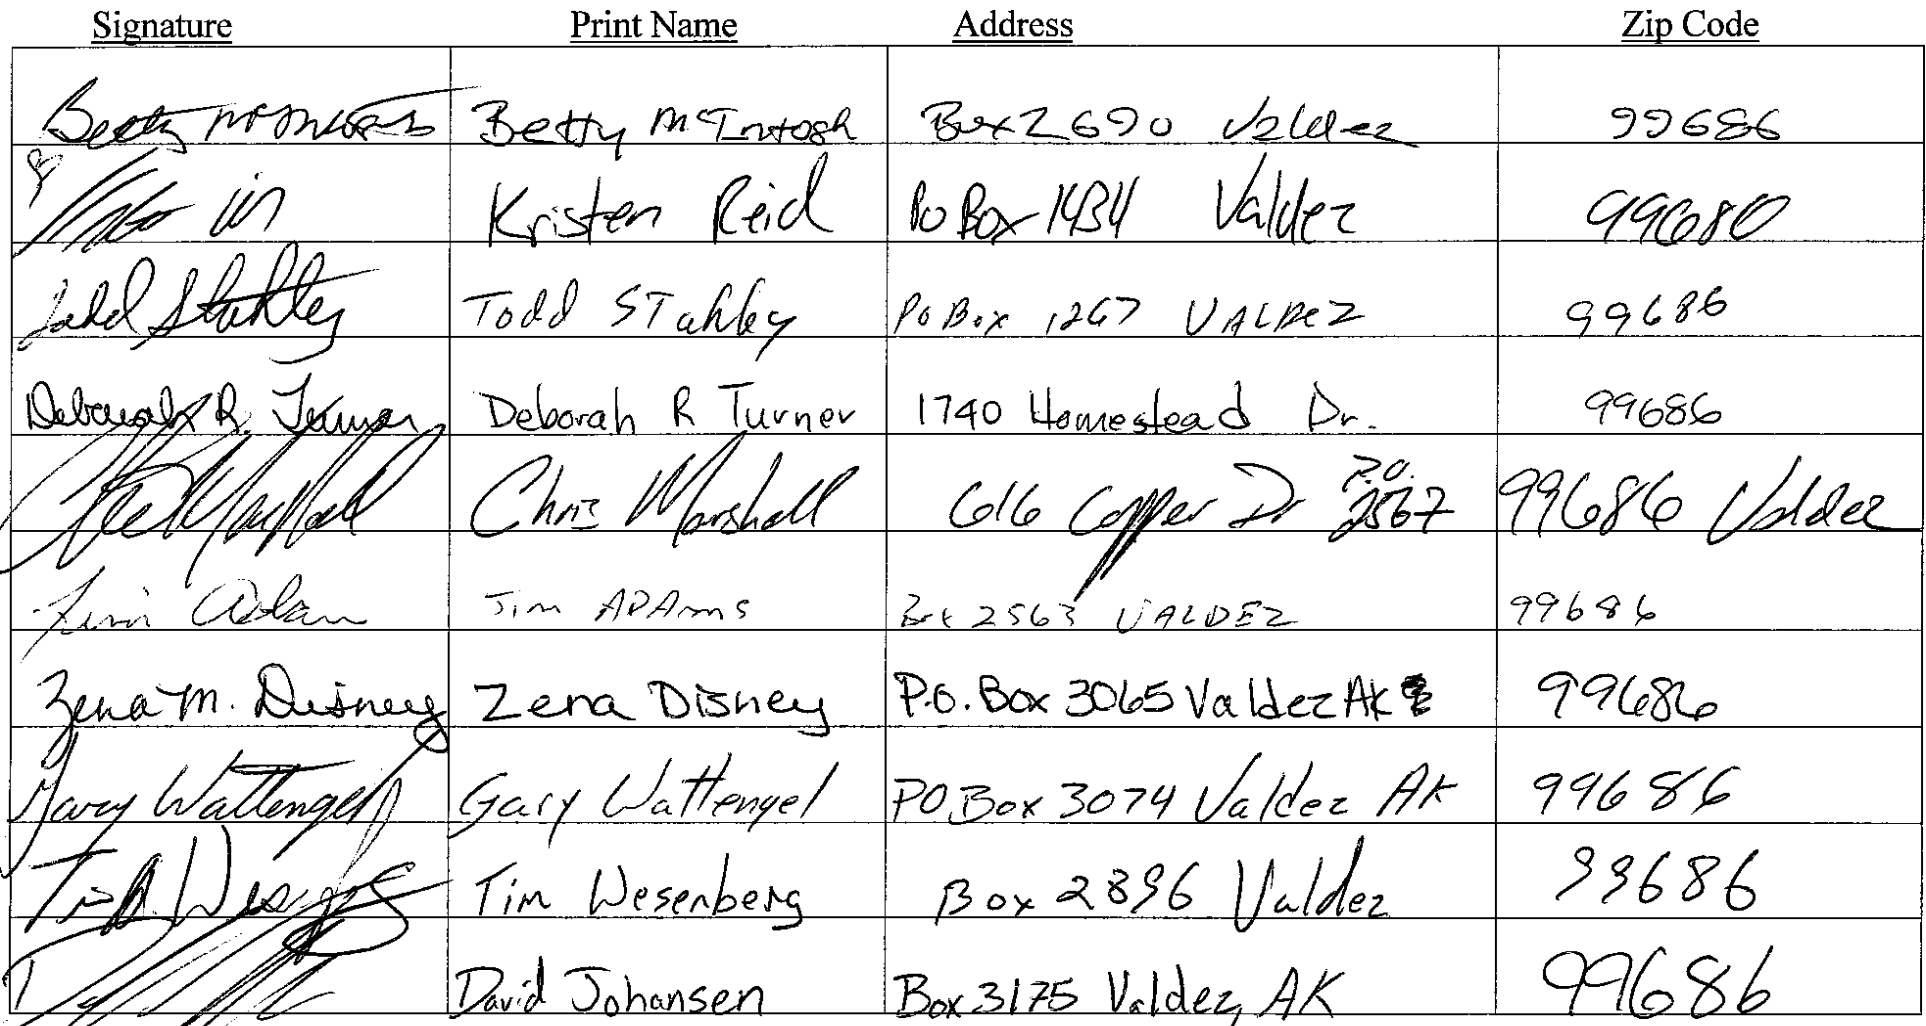 Signature Print Name Address Zip Code
Betty McIntosh Betty McIntosh Box 2690 Valdez 99686
Kristen Reid Po Box 1434 Valdez 99680
Todd Stahley Todd STahley Po Box 1267 VALDEZ 99686
Deborah R. Turner Deborah R Turner 1740 Homestead Dr. 99686
Chris Marshall Chris Marshall 616 Copper Dr P.O. 2567 99686 Valdez
Jim Adams Jim ADAms Box 2563 VALDEZ 99686
Zena M. Disney Zena Disney P.O. Box 3065 Valdez AK 99686
Gary Wattengel Gary Wattengel PO Box 3074 Valdez AK 99686
Tim Wesenberg Box 2896 Valdez 99686
David Johansen Box 3175 Valdez, AK 99686